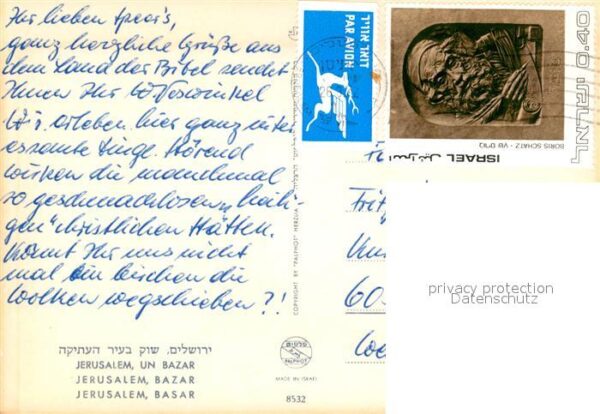 Ihr lieben
ganz herzliche Grüße aus
dem Land der Bibel sendet
Ihnen Ihr
Wir erleben hier ganz inter-
essante Dinge. Störend
wirken die manchmal
so geschmacklosen "heili-
gen" christlichen Stätten.
Könnt Ihr uns nicht
mal ein bischen die
Wolken wegschieben?!
ירושלים, שוק בעיר העתיקה
JERUSALEM, UN BAZAR
JERUSALEM, BAZAR
JERUSALEM, BASAR
COPYRIGHT BY "PALPHOT" HERZLIA
PALPHOT
MADE IN ISRAEL
8532
דואר אויר
PAR AVION
0.40
ISRAEL ישראל اسرائيل
BORIS SCHATZ - בוריס שץ
Fritz
60
privacy protection
Datenschutz